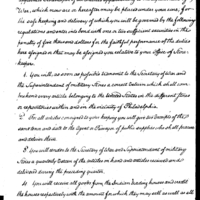 War, which now are or hereafter may be placed under your care, for
the safe keeping and delivery of which you will be governed by the following
regulations and enter into bond with one or two sufficient securities in the
penalty of five thousand dollars for the faithful performance of the duties
here of yours in that may be of yours in relation to your Office of Store
keeper.
1. You will, as soon as practicable transmit to the Secretary of War and
the Superintendant of military Stores a correct Return which shall com-
prehend every article belonging to the United States in the different Stores
or repositories within and in the vicinity of Philadelphia.
2. For all articles consigned to your keeping you will give receipts of the
and deliver
3. You will render to the Secretary of War and Superintendant of military
Stores a quarterly Return of the articles on hand and articles received and de-
livered during the preceding quarter.
4. You will receive all goods from the Indian trading houses and credit
the houses respectively with the amount for which they may sell as well as all